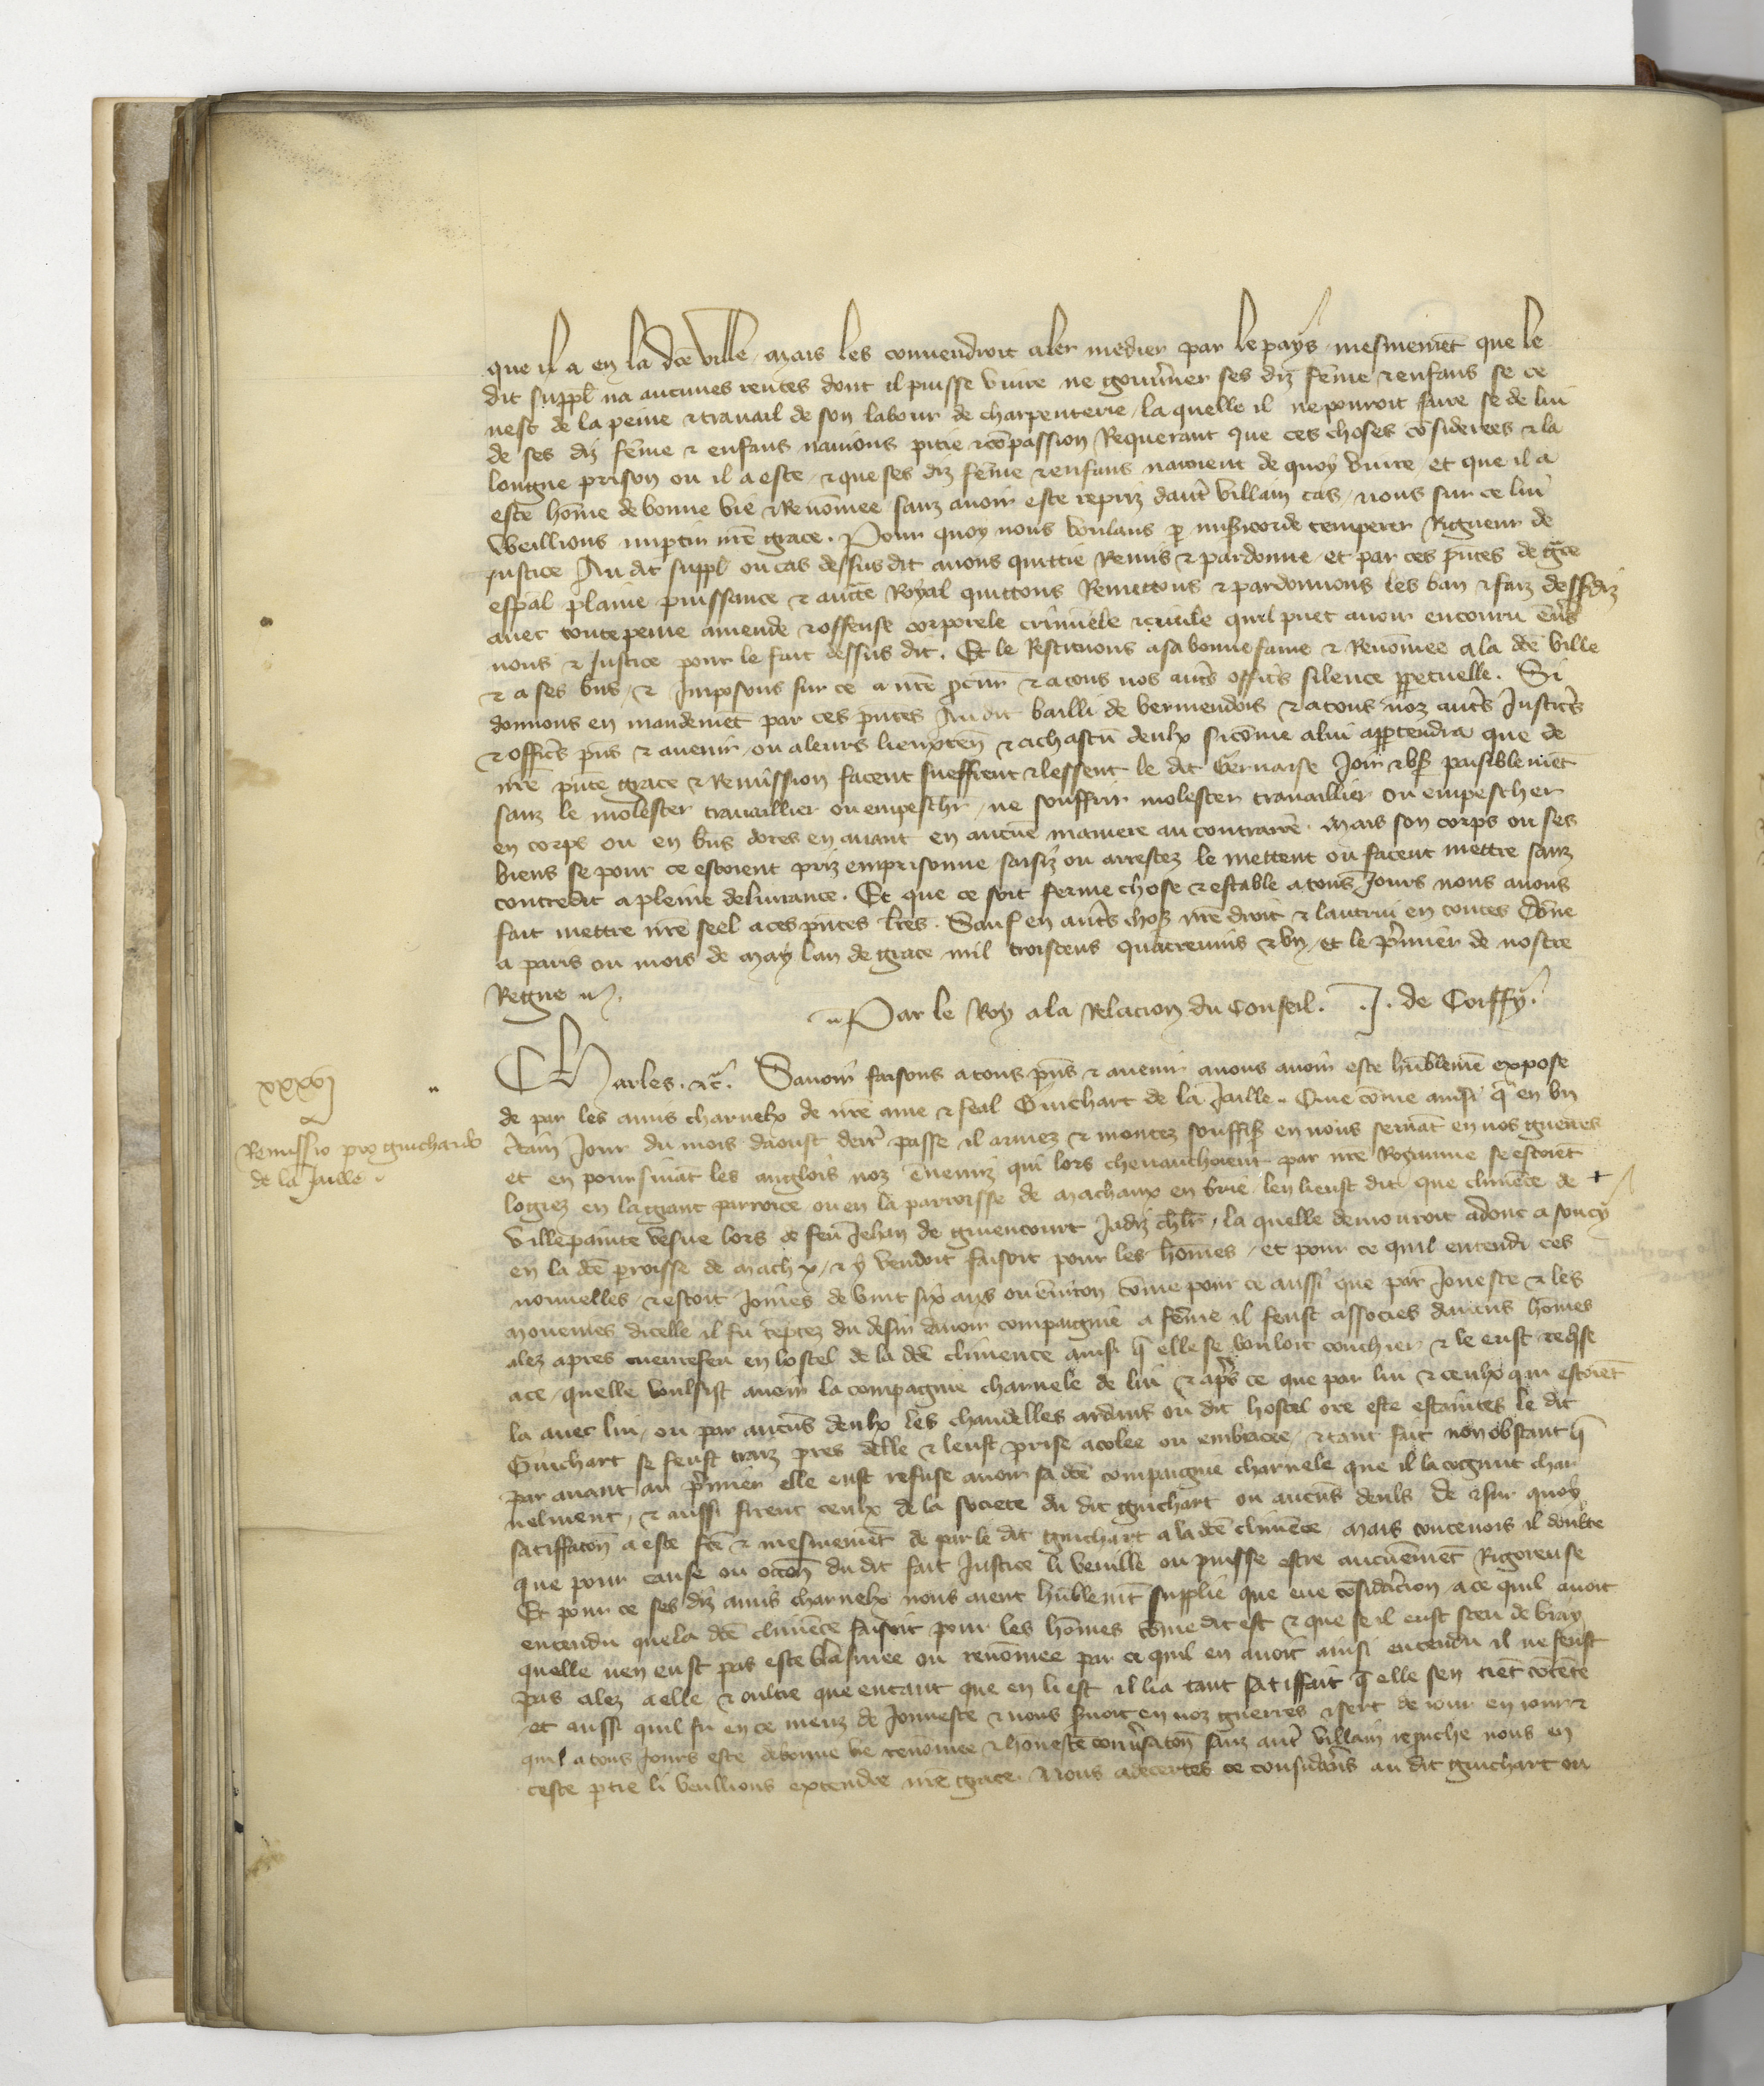 que il a en la dce ville mais les convendroit aler mēdier par le pays mesmemēt que le
dit suppl na aucunes rentes dont il puisse vivre ne gouv̄ner ses diz fēme & enfans se ce
nest de la peine & travail de son labour de charpenterie la quelle il ne pouroit faire se de lui
de ses diz fēme & enfans navions pitie & cōpassion Requerant que ces choses cōsiderees & la
longue prison ou il a este & que ses diz fēme & enfans naroient de quoy vivre et que il a
este hōme de bonne vie & Renōmee sanz avoir este repris daut̄ villain cas nous sur ce lui
Weillions imp̄tir nr̄e grace. Pour quoy nous voulans p̄ mis̄icorde temperer Rigueur de
justice Au dit suppl ou cas dessus dit avons quittie Remis & pardonne et par ces p̄ntes de gr̄ce
esp̄al plaine puissance & auct̄e Royal quittons Remettons & pardonnons les ban & faiz dess̄diz
avec toute peine amende & offense corporele crīminele & civile quil puet avoir encouru env̄s
nous & Justice pour le fait dessus dit. Et le Restituons a sa bonne fame & Renōmee a la dce ville
& a ses bn̄s & Imposons sur ce a nr̄e p̄cur̄ & a tous nos aut̄s offic̄s silence p̄petuelle. Si
donnons en mandemēt par ces p̄ntes Au dit bailli de Vermendois & a tous noz aut̄s Justic̄s
& offic̄s p̄ns & avenir ou a leurs lieuxten̄ & a chascū deulx si cōme a lui app̄tendra que de
nr̄e p̄nte grace & Remission facent sueffrent & lessent le dit Gervaise Joir & us̄ paisiblemēt
sanz le molester travaillier ou empeschr̄ ne souffrir molester travaillier ou empescher
en corps ou en bn̄s dores en avant en aucūe maniere au contraire. Mais son corps ou ses
biens se pour ce estoient priz emprisonne saisiz ou arrestez le mettent ou facent mettre sanz
contredit a pleine delivrance. Et que ce soit ferme chose & estable a tous Jours nous avons
fait mettre nr̄e seel a ces p̄ntes lr̄es. Sauf en aut̄s chos̄ nr̄e droit & lautrui en toutes Dōne
a paris ou mois de May lan de grace mil troiscens quatrevins & un et le p̄mier de nostre
Regne
Par le Roy a la Relacion du Conseil. J. de Coiffy.
Charles. &c̄. Savoir faisons a tous p̄ns & avenir a nous avoir este hūblemēt expose
de par les amis charnelx de nr̄e ame & feal Guichart de la Jaille. Que cōme ainsi q̄ en un
c̄tain Jour du mois daoust derr̄ passe il armez & montez souffis̄ en nous servāt en nos guerres
et en poursuiāt les anglois noz ēnemiz qui lors chevauchoient par nr̄e Royaume se estoiēt
logiez en la parroisse de Machaux en brie len lieust dit que climēce de +
Villepainte vesve lors de feu Jehan de guiencourt Jadiz ch̄lr, la quelle demouroit adonc a soucy
en la dce p̄roisse de Mach & y vendoit faisoit pour les hōmes et pour ce quil entendi ces
nouvelles & estoit Joines de vint six ans ou ēviron cōme pour ce aussi que par Joneste & les
dicelle il fu tēptez du desir davoir compaignie a fēme il feust associes daucūs hōmes
alez apres cuevrefeu en lostel de la dce climence ainsi q̄ elle se vouloit couchier & le eust reqise
a ce quelle voulsist avoir la compagnie charnele de lui & aps̄ ce que par lui & ceulx qui estoiēt
la avec lui ou par aucūs deulx les chandelles ardans ou dit hostel ore este estaintes le dit
Guichart se feust traiz pres delle & leust prise acolee ou embracee & tant fait nonobstant q̄
par avant au p̄mier elle eust refuse avoir sa dce compaignie charnele que il la cognut char
nelment, & aussi firent ceulx de la societe du dit guichart ou aucūs deuls de & sur quoy
satiffacon̄ a este fc̄e & mesmemēt de par le dit guichart a la dce climēce Mais toutevois il doubte
que pour cause ou occōn du dit fait Justice li veuille ou puisse estre aucūemēt Rigoreuse
Et pour ce ses diz amis charnelx nous aient hūblemēt supplie que eue cōsiderac̄ion a ce quil avoit
entendu que la dce climēce faisoit pour les hōmes cōme dit est & que se il eust sceu de vray
quelle nen eust pas este blasmee ou renōmee par ce quil en avoit ainsi entendu il ne feust
pas alez a elle & oultre que entant que en li est il li a tant satiffait q̄ elle sen tiēt cōtēte
et aussi quil fu en ce meuz de Jonneste & nous s̄voit en noz guerres & sert de jour en jour &
quil a tous Jours este de bonne vie renōmee & hōneste conv̄sacon̄ sanz aut̄ villain reprūche nous en
ceste p̄tie li veullions extendre nr̄e grace. Nous adecertes ce consider̄ns au dit guichart ou
xxxvj
Remissio pro guichardo
de la Jaille.